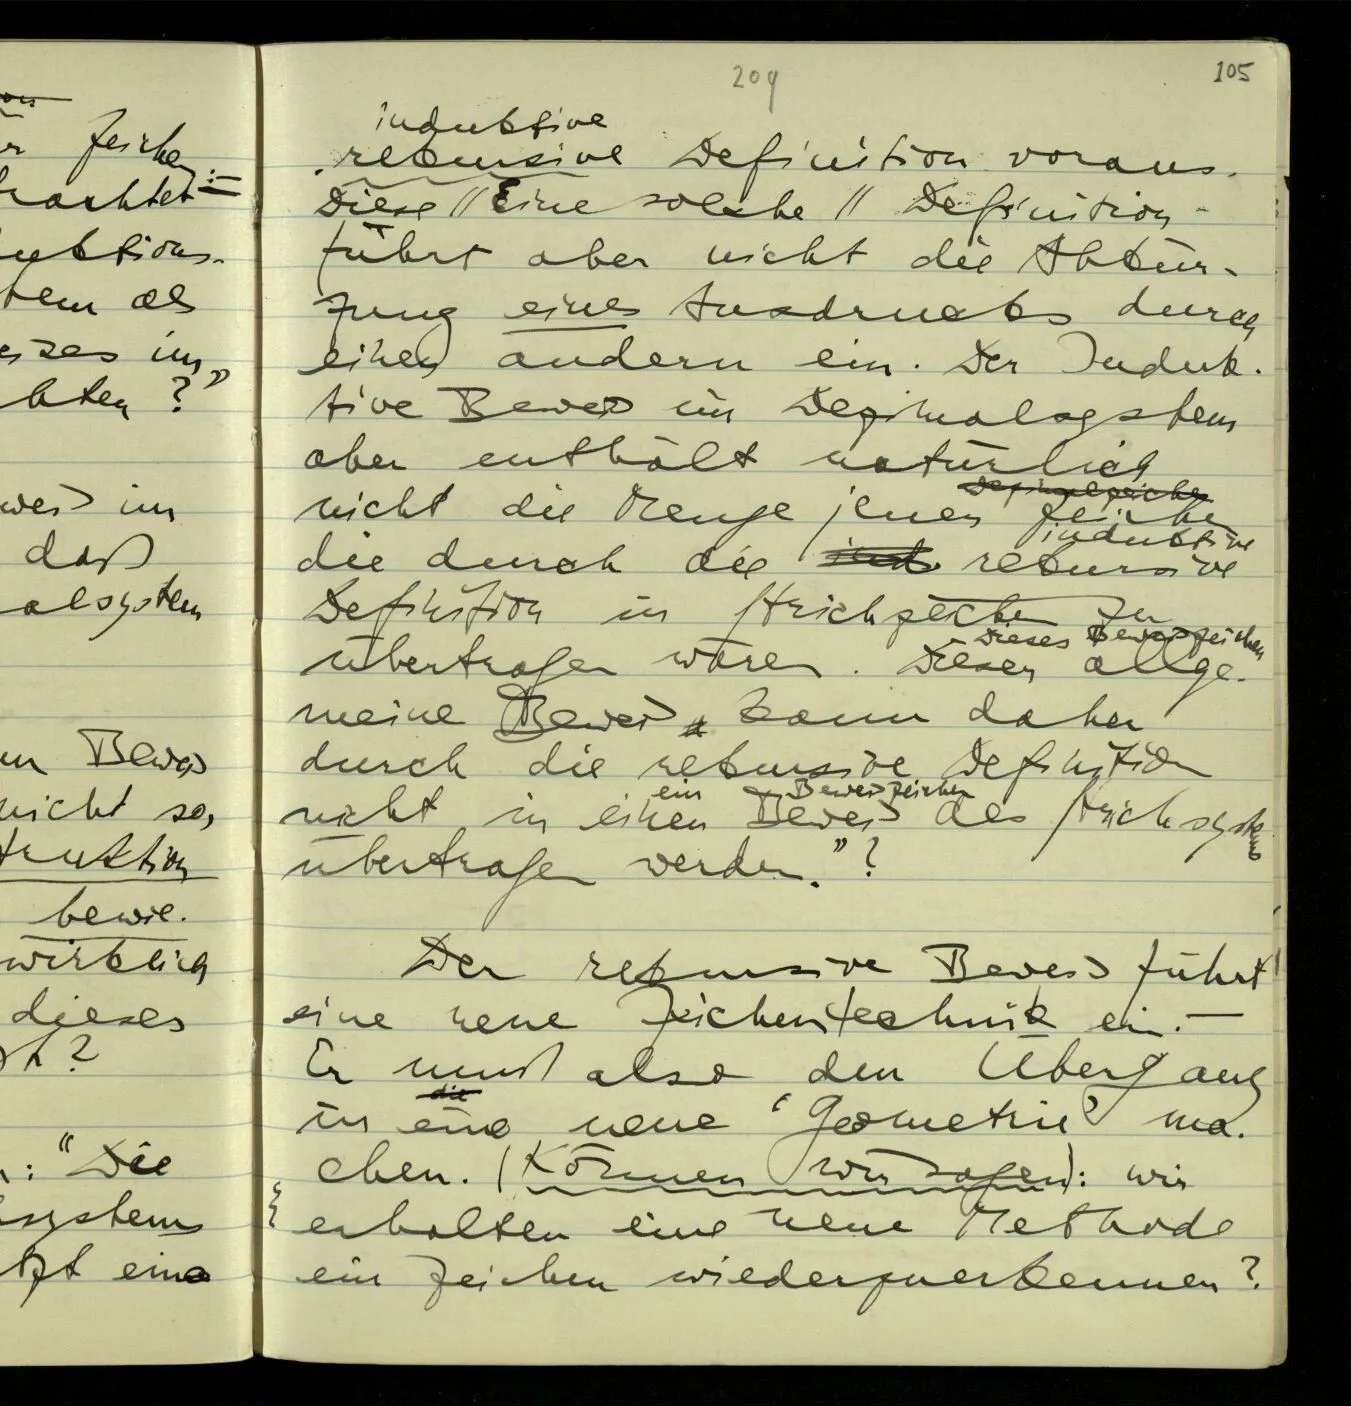 on
r Zeichen
trachtet
uktions-
tem als
eises im
hten ?"
weis im
daß
alsystem
m Beweis
nicht so,
struktion
bewie-
wirklich
dieses
: "Die
systems
tzt eine
209
105
induktive
rekursive Definition voraus.
Diese // Eine solche // Definition
führt aber nicht die Abkür-
zung eines Ausdrucks durch
einen andern ein. Der Induk-
tive Beweis im Dezimalsystem
aber enthält natürlich
Dezimalzeichen
nicht die Menge jener Zeichen
induktive
die durch die ind. rekursive
Definition in Strichzeichen zu
Dieses Beweiszeichen
übertragen wären. Dieser allge-
meine Beweis kann daher
durch die rekursive Definition
ein Beweiszeichen
nicht in einen Beweis des Strichsystems
übertragen werden." ?
Der rekursive Beweis führt
eine neue Zeichentechnik ein. —
Er muß also den Übergang
die
in eine neue 'Geometrie' ma-
chen. (Können wir sagen): wir
erhalten eine neue Methode
ein Zeichen wiederzuerkennen?